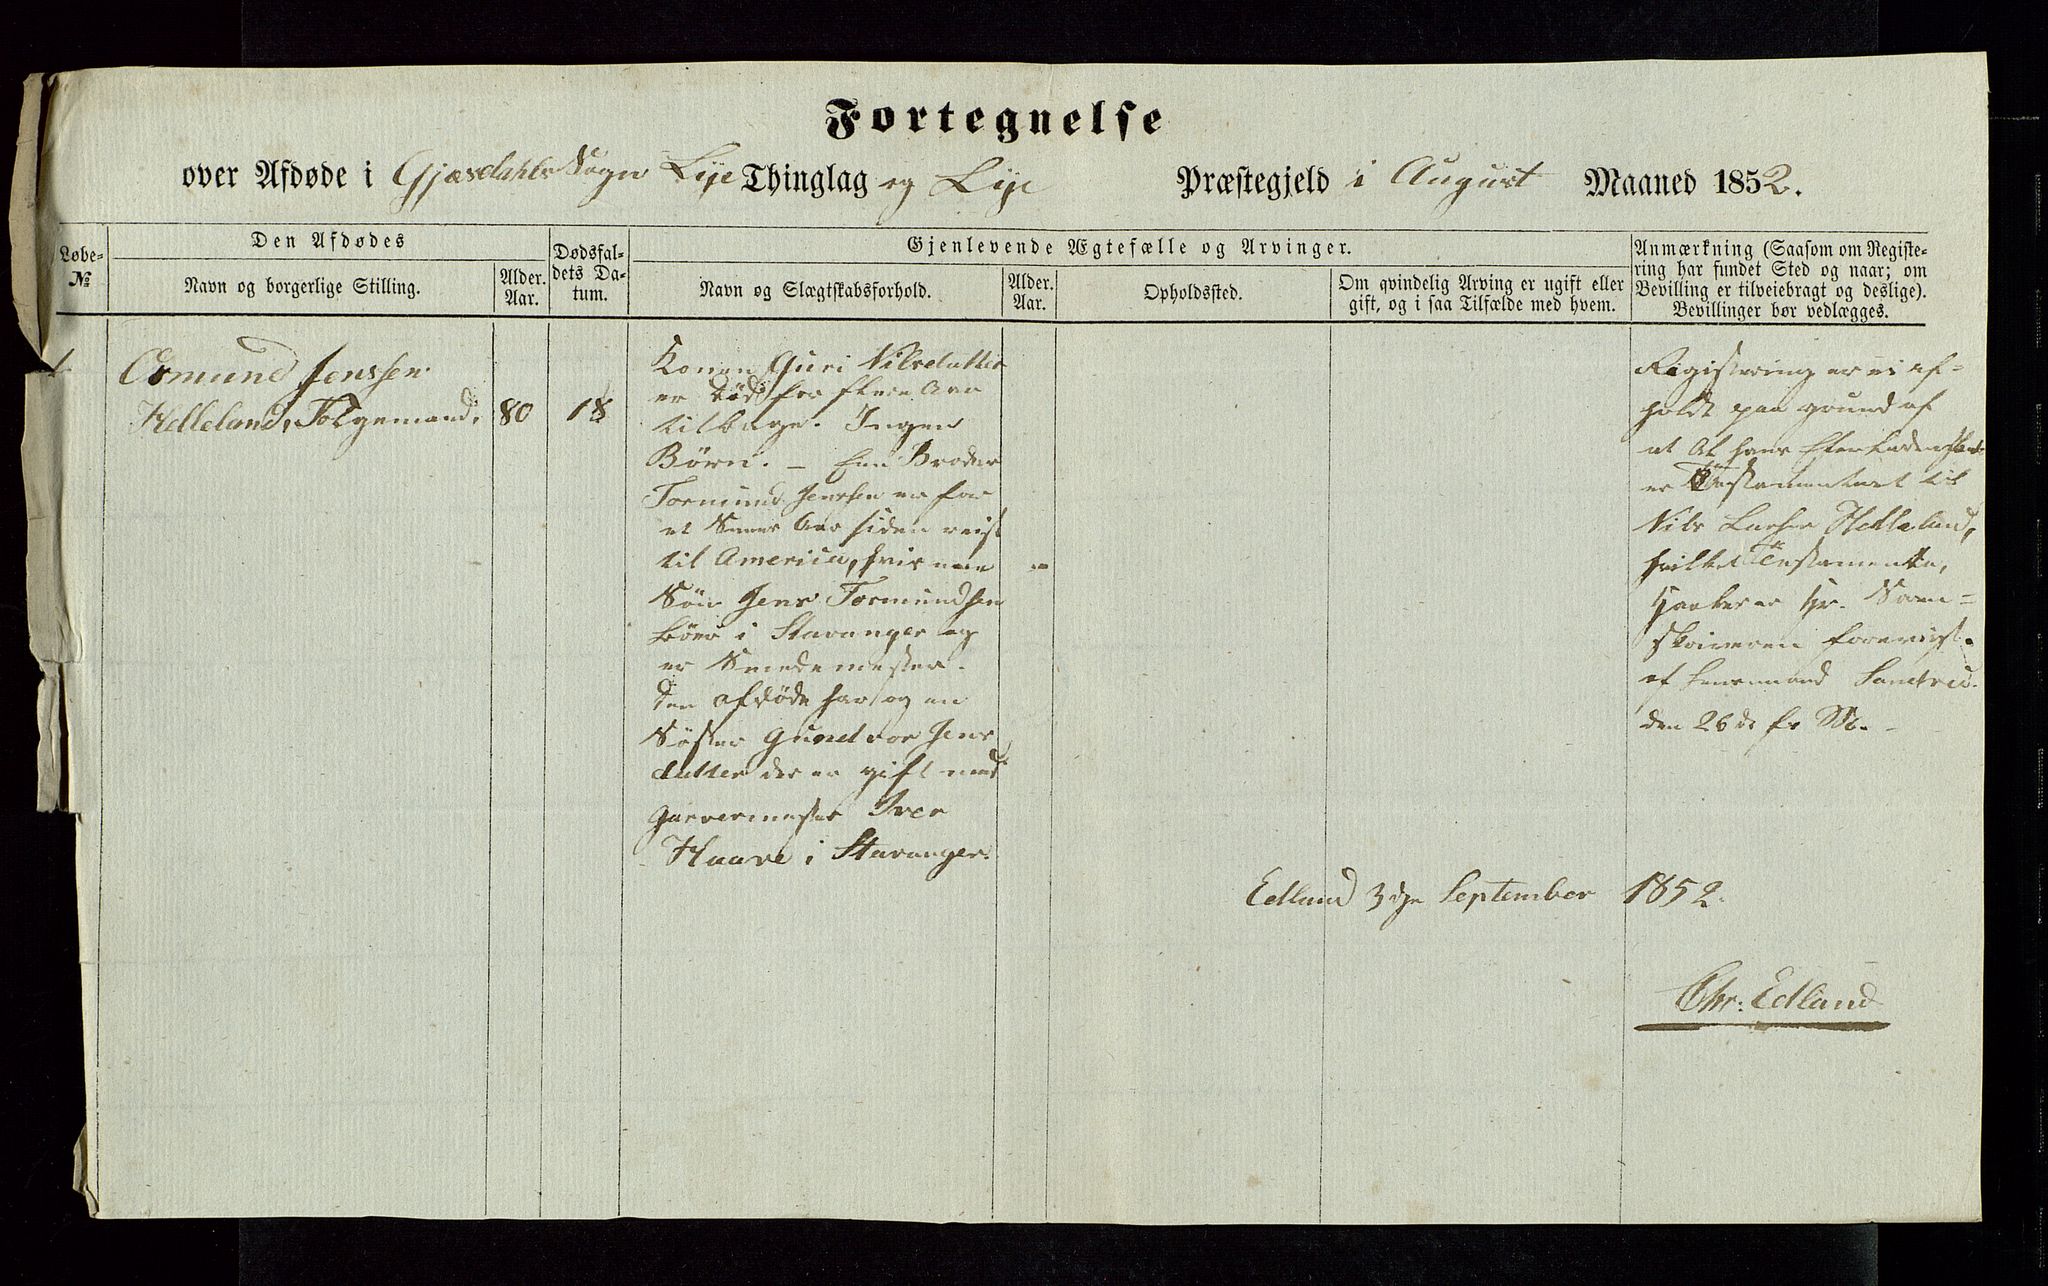 Fortegnelse
over Afdøde i Gjæsdahls Sogn Lye Thinglag og Lye Præstegjeld i August Maaned 1852.
Løbe-
No
Den Afdødes
Navn og borgerlige Stilling.
Alder.
Aar.
Dødsfal-
dets Da-
tum.
Gjenlevende Ægtefælle og Arvinger.
Navn og Slægtskabsforhold.
Alder.
Aar.
Opholdssted.
Om qvindelig Arving er ugift eller
gift, og i saa Tilfælde med hvem.
Anmærkning (Saasom om Registe-
ring har fundet Sted og naar; om
Bevilling er tilveiebragt og deslige).
Bevillinger bør vedlægges.
1
Osmund Jenssen
Helleland, Følgemand,
80
18
Konen Guri Nilsdatter
er død for flere Aar
tilbage. Ingen
Børn. – Een Broder
Tormund Jenssen er for
et Snees Aar siden reist
til America, hvis ene
Søn Jens Tormundsen
boer i Stavanger og
er Smedemester.
den afdøde har og en
Søster Gundvor Jens
datter der er gift med
Garvermester Iver
Haave i Stavanger.
"
Registering er ei af-
holdt paa grund af
at Al hans Efterladenskab
er Testamenteret til
Nils Larsen Helleland,
hvilket Testamente,
Hr. Soren-
skriveren foreviist
af Lensmand
den 26de f. M. -
Edland 3die September 1852.
Chr: Edland